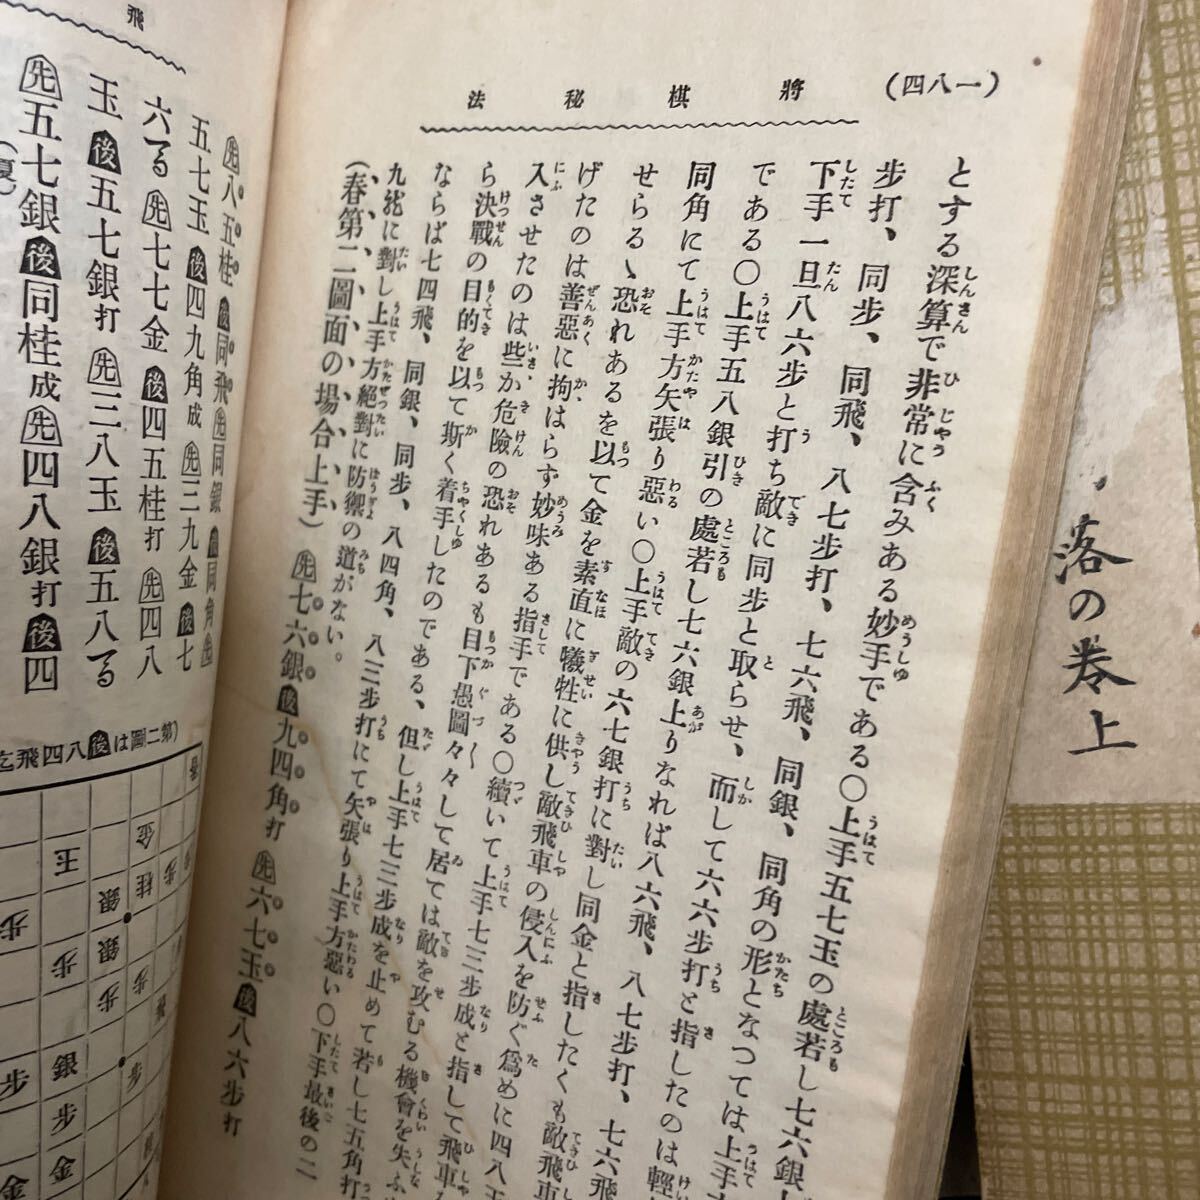 （一八四）
將棋秘法
とする深算で非常に含みある妙手である〇上手五七玉の處若し七六銀
步打、同步、同飛、八七步打、七六飛、同銀、同角の形となつては上手
下手一旦八六步と打ち敵に同步と取らせ、而して六六步打と指したのは輕
である〇上手五八銀引の處若し七六銀上りなれば八六飛、八七步打、七六飛
同角にて上手方矢張り惡い〇上手敵の六七銀打に對し同金と指したくも敵飛車
せらるゝ恐れあるを以て金を素直に犧牲に供し敵飛車の侵入を防ぐ爲めに四八玉
げたのは善惡に拘はらず妙味ある指手である〇續いて上手七三步成と指して飛車
入させたのは些か危險の恐れあるも目下愚圖々々して居ては敵を攻むる機會を失ふ
ら決戰の目的を以て斯く着手したのである、但し上手七三步成を止めて若し七五角打
ならば七四飛、同銀、同步、八四角、八三步打にて矢張り上手方惡い〇下手最後の二
九飛に對し上手方絕對に防禦の道がない。
（春第二圖面の場合上手）先七六銀後九四角打先六七玉後八六步打
飛
先八五桂後同飛先同銀後同角先
五七玉後四九角成先三九金後七
六る先七七金後四五桂打先四八
玉後五七銀打先三八玉後五八る
先五七銀後同桂成先四八銀打後四
（夏）
（第二圖は後八四飛迄
玉
金
桂
銀
銀
步
步
步
步
步
銀
步
步
金
金
落の卷上